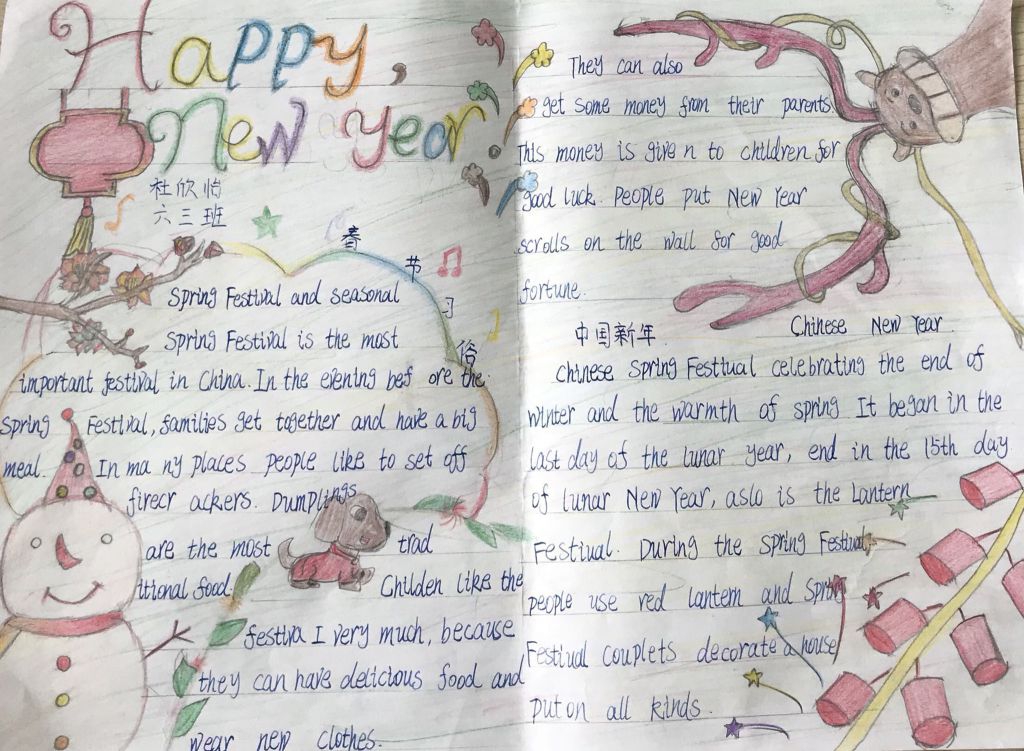 Happy,
New year
杜欣怡
六三班
春节习俗
Spring Festival and seasonal
Spring Festival is the most
important festival in China. In the evening bef ore the
Spring Festival, families get together and have a big
meal. In ma ny places people like to set off
firecr ackers. Dumplings
are the most trad
itional food. Childen like the
festiva I very much, because
they can have delicious food and
wear new clothes.
They can also
get some money from their parents
This money is give n to children for
good luck. people put New Year
scrolls on the wall for good
fortune.
中国新年. Chinese New Year.
Chinese Spring Festiual celebrating the end of
winter and the warmth of spring It began in the
last day of the lunar year, end in the 15th day
of lunar New Year, aslo is the Lantern
Festiual. During the Spring Festiual,
people use red lantern and Spring
Festiual couplets decorate a house
put on all kinds.